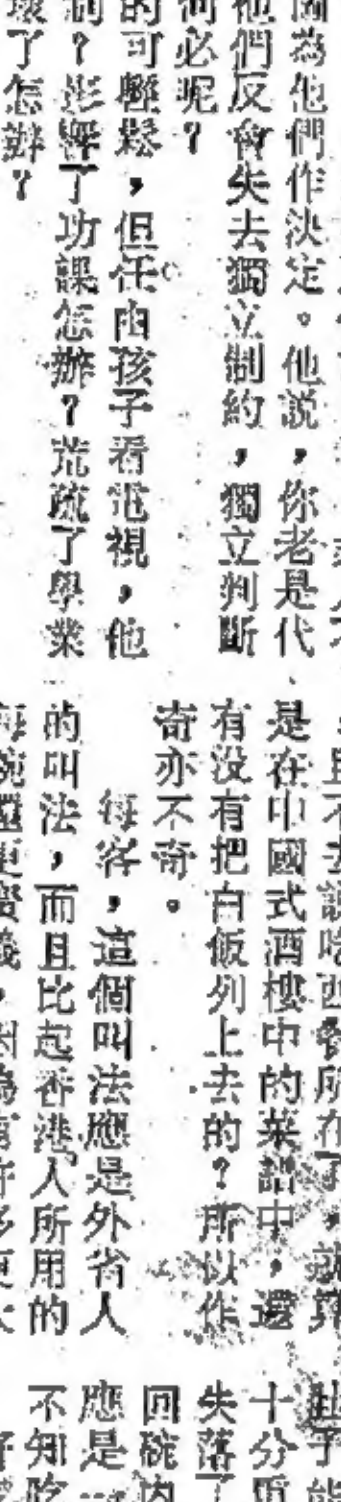 因為他們作決定。他說，你老是代
他們反會失去獨立制約，獨立判斷
何必呢？
的可輕鬆，但任由孩子看電視，他
制？影響了功課怎辦？荒疏了學業
壞了怎辦？
，且不去說吃西餐所在了，就算
是在中國式酒樓中的菜譜中，還
有没有把白飯列上去的？所以作
奇亦不奇。
每客，這個叫法應是外省人
的叫法，而且比起香港人所用的
十分
失落了
回碗内
應是
不知吃